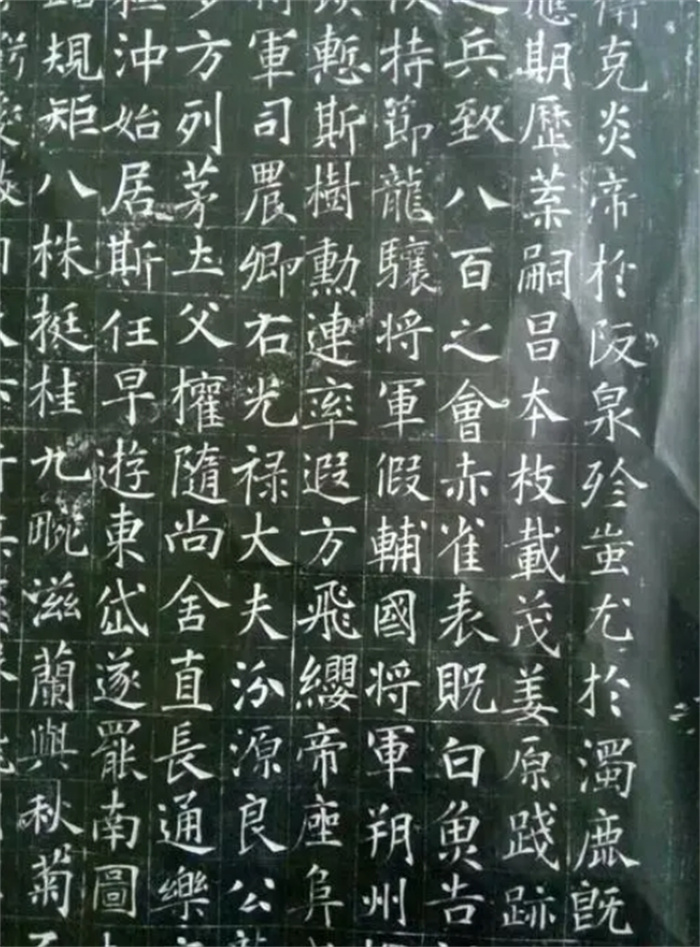 克炎帝於阪泉殄蚩尤於濁鹿既
應期歷葉嗣昌本枝載茂姜原踐跡
兵致八百之會赤雀表貺白魚告
持節龍驤将軍假輔國将軍朔州
慙斯樹勳連率遐方飛纓帝座阜
軍司農卿右光禄大夫汾源良公
方列茅土父權隨尚舍直長通樂
沖始居斯任早遊東岱遂罷南圖
規矩八株挺桂九畹滋蘭與秋菊